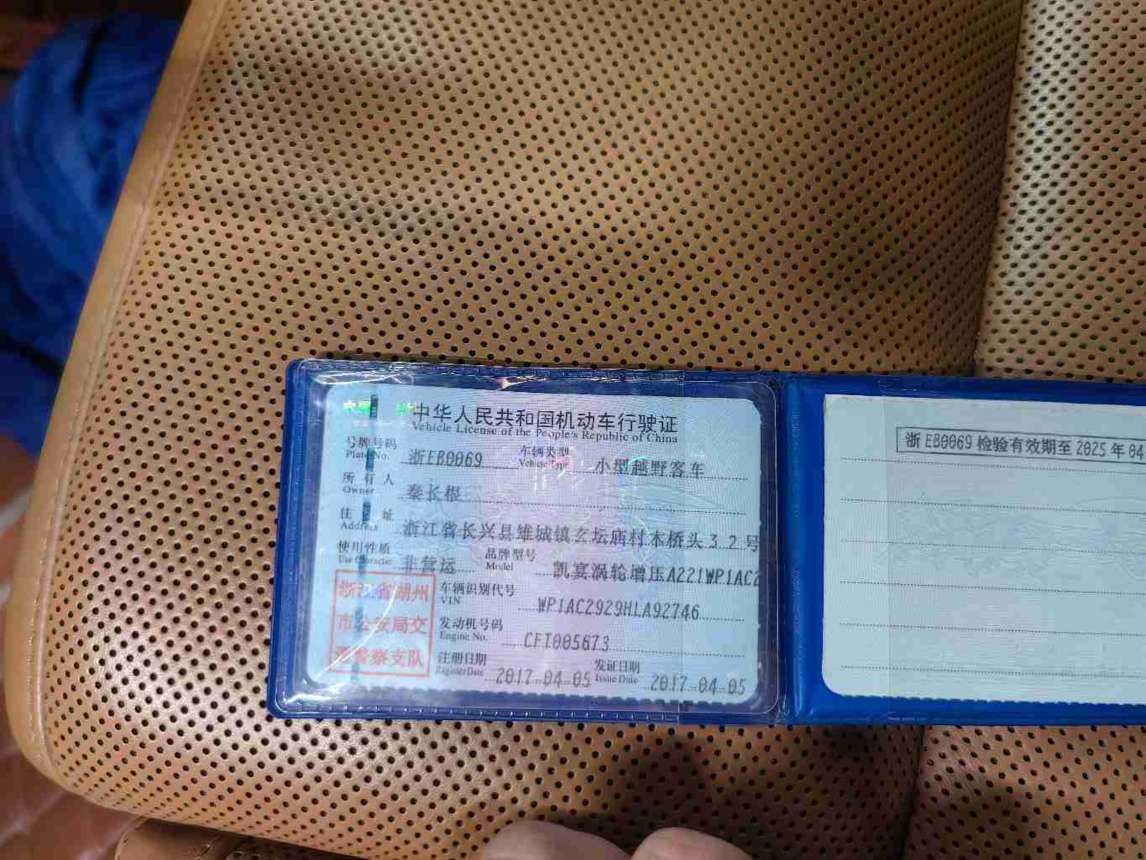 中华人民共和国机动车行驶证
Vehicle License of the People's Republic of China
号牌号码 浙EB0069 车辆类型 小型越野客车
Plate No. Vehicle Type
所有人 秦长根
Owner
住址 浙江省长兴县雉城镇玄坛庙村木桥头32号
Address
使用性质 非营运 品牌型号 凯宴涡轮增压A221WP1AC2
Use Character Model
浙江省湖州
市公安局交
通警察支队
车辆识别代号 WP1AC2929HLA92746
VIN
发动机号码 CFT005673
Engine No.
注册日期 2017-04-05 发证日期 2017-04-05
Register Date Issue Date
浙EB0069 检验有效期至 2025年04